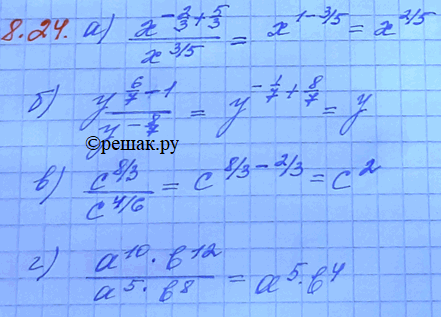 8.24. а) x^(-2/3+5/3) / x^(3/5) = x^(1-3/5) = x^(2/5)
б) y^(6/7-1) / y^(-8/7) = y^(-1/7+8/7) = y
©решак.ру
в) c^(8/3) / c^(4/6) = c^(8/3-2/3) = c^2
г) a^10 · b^12 / a^5 · b^8 = a^5 · b^4